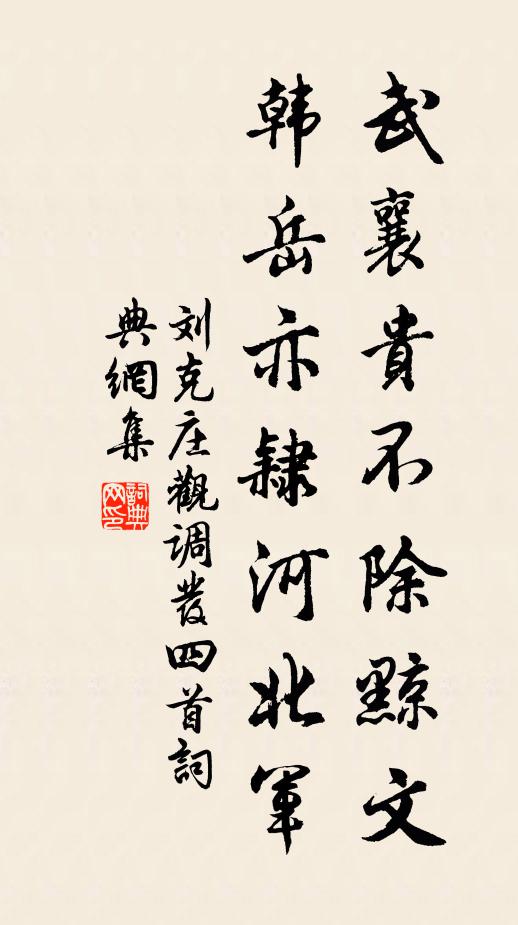 武襄貴不除黥文
韓岳亦隸河北軍
刘克庄觀调發四首詞
典網集
詞典
网印